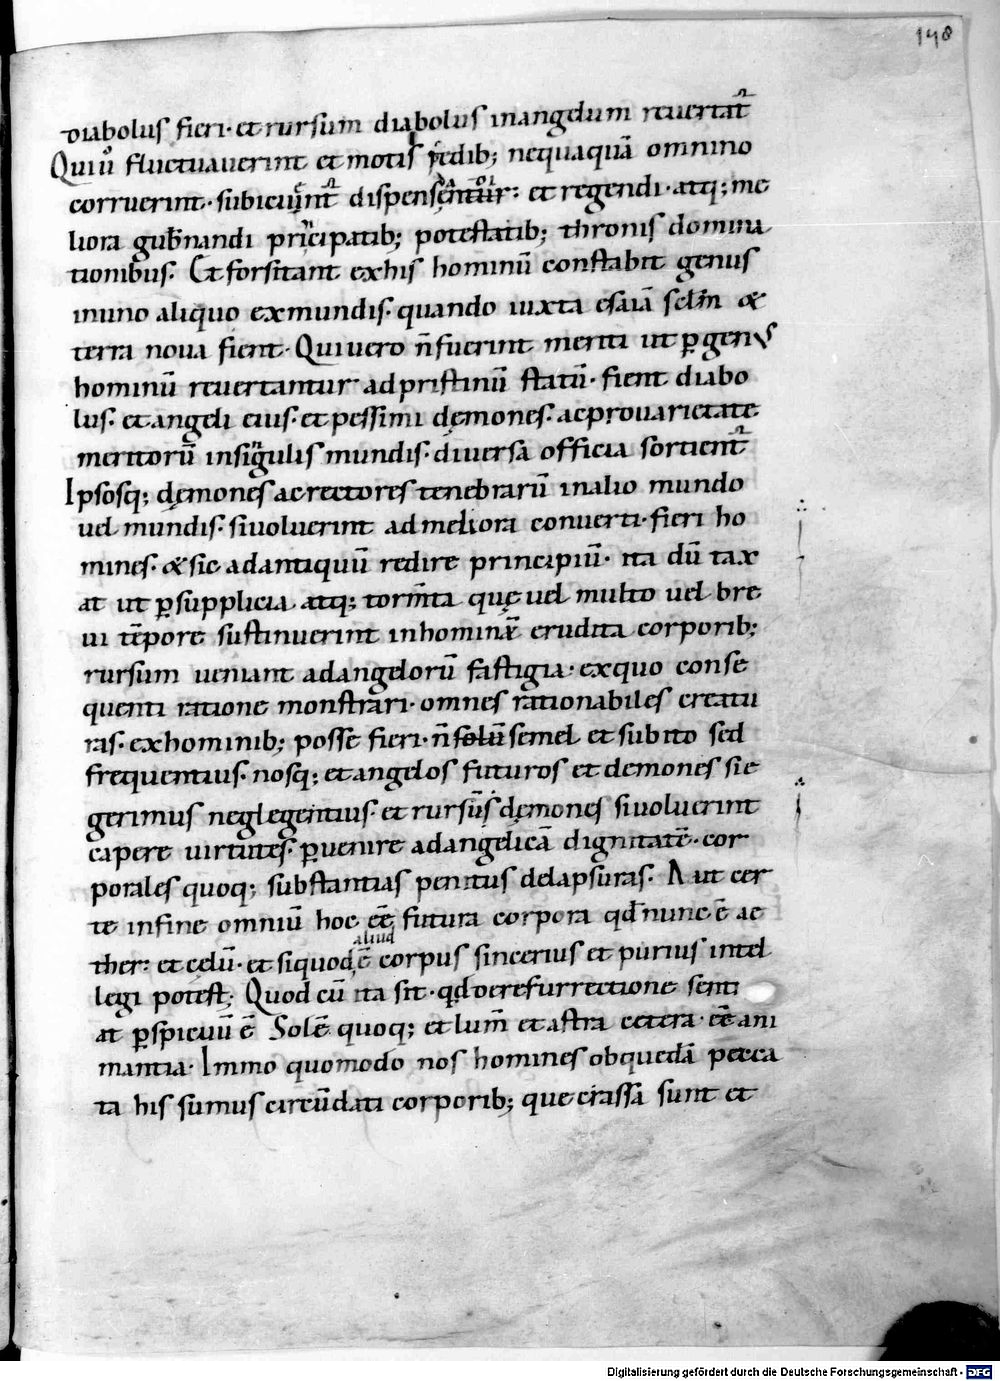 148
diabolus fieri· et rursum diabolus inangelum reuertat᷑
Qui ū fluctuauerint et motis pedib; nequaquā omnino
corruerint· subiciunt᷑ dispensantur: et regendi· atq; me
liora gub̄nandi principatib; potestatib; thronis domina
tionibus. Et forsitant exhis hominū constabit genus
inuno aliquo exmundis· quando iuxta esaiā celū &
terra noua fient· Qui uero n̄ fuerint meriti ut p̱ gen'
hominū reuertantur adpristinū statū· fient diabo
lus· et angeli eius· et pessimi dęmones· ac prouarietate
meritorū insingulis mundis· diuersa officia sortient᷑
Ipsosq; dęmones ac rectores tenebrarū inalio mundo
uel mundis· siuoluerint admeliora conuerti· fieri ho
mines· & sic adantiquū redire principiū· ita dū tax
at ut p̱ supplicia atq; torm̄ta quę uel multo uel bre
ui tēpore sustinuerint inhominū erudita corporib;
rursum ueniant adangelorū fastigia· exquo conse
quenti ratione monstrari· omnes rationabiles creatu
ras· exhominib; posse fieri· n̄ solū semel et subito sed
frequentius· nosq; et angelos futuros et demones sie
gerimus neglegentius· et rursūs dęmones siuoluerint
capere uirtutes· p̱uenire adangelicā dignitatē· cor
porales quoq; substantias penitus delapsuras· Aut cer
te infine omniū hoc eē futura corpora qđ nunc ē ae
ther: et cęlū· et siquod aliud ē corpus sincerius et purius intel
legi potest; Quod cū ita sit· qđ deresurrectione senti
at p̱spicuū ē Solē quoq; et lunā et astra cetera· eē ani
mantia· Immo quomodo nos homines obquedā pecca
ta his sumus circūdati corporib; que crassa sunt et
Digitalisierung gefördert durch die Deutsche Forschungsgemeinschaft - DFG